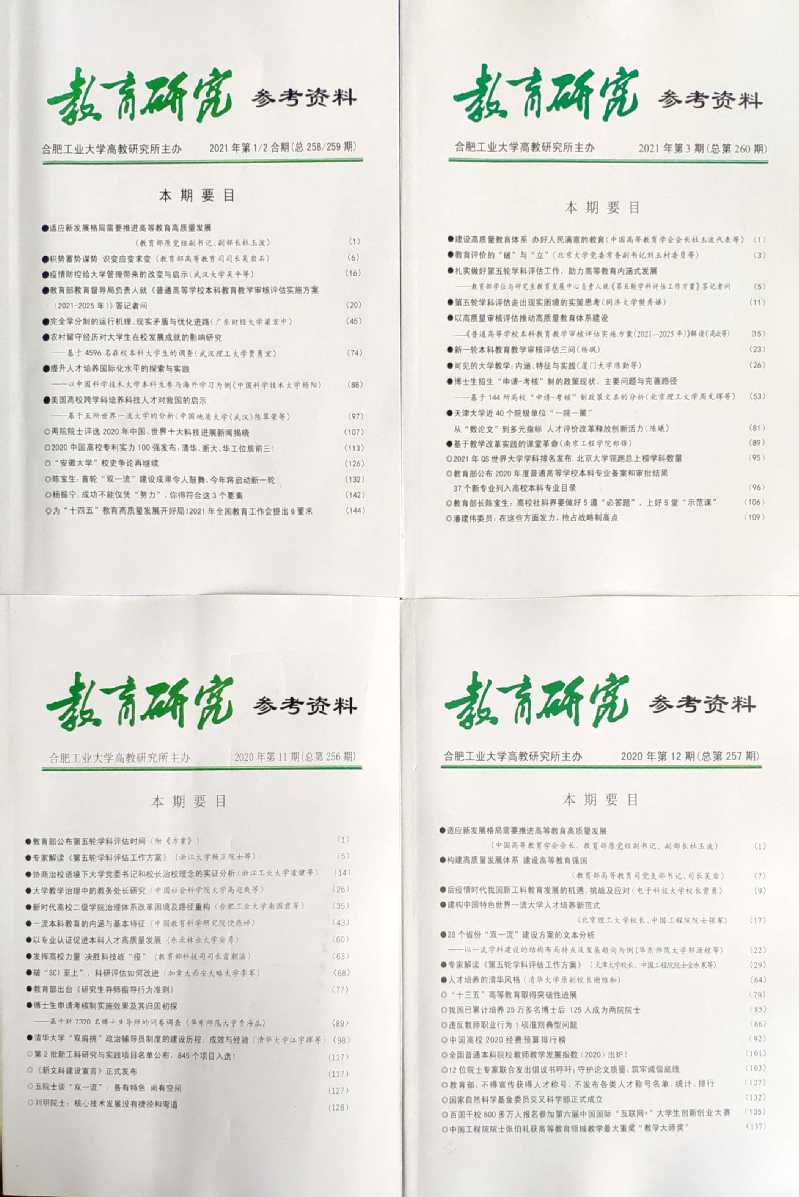 教育研究 参考资料
合肥工业大学高教研究所主办 2021年第1/2合期(总258/259期)
本期要目
●适应新发展格局需要推进高等教育高质量发展
(教育部原党组副书记、副部长杜玉波) (1)
●积势蓄势谋势 识变应变求变(教育部高等教育司司长吴岩) (6)
●疫情防控给大学管理带来的改变与启示(武汉大学吴平等) (16)
●教育部教育督导局负责人就《普通高等学校本科教育教学审核评估实施方案
(2021-2025年)》答记者问 (20)
●完全学分制的运行机理、现实矛盾与优化进路(广东财经大学) (45)
●农村留守经历对大学生在校发展成就的影响研究
——基于4596名在校本科大学生的调查(武汉理工大学贾勇宏) (74)
●提升人才培养国际化水平的探索与实践
——以中国科学技术大学本科生赴海外学习为例(中国科学技术大学杨阳) (88)
●美国高校跨学科培养科技人才对我国的启示
——基于五所世界一流大学的分析(中国地质大学(武汉)陈翠荣等) (97)
○两院院士评选2020年中国、世界十大科技进展新闻揭晓 (107)
○2020中国高校专利实力100强发布,清华、浙大、华工位居前三! (113)
○“安徽大学”校史争论再继续 (126)
○陈宝生:首轮“双一流”建设成果令人鼓舞,今年将启动新一轮 (132)
○杨振宁:成功不能仅凭“努力”,你得符合这3个要素 (142)
○为“十四五”教育高质量发展开好局!2021年全国教育工作会提出9要求 (144)
教育研究 参考资料
合肥工业大学高教研究所主办 2021年第3期(总第260期)
本期要目
●建设高质量教育体系 办好人民满意的教育(中国高等教育学会会长杜玉波代表等) (1)
●教育评价的“破”与“立”(北京大学党委常务副书记刘玉村委员等) (3)
●扎实做好第五轮学科评估工作,助力高等教育内涵式发展
——教育部学位与研究生教育发展中心负责人就《第五轮学科评估工作方案》答记者问 (5)
●第五轮学科评估走出现实困境的实策思考(同济大学樊秀娣) (11)
●以高质量审核评估推动高质量教育体系建设
——《普通高等学校本科教育教学审核评估实施方案(2021-2025年)》解读(高达等) (15)
●新一轮本科教育教学审核评估三问(杨飒) (23)
●可见的大学教学:内涵、特征与实践(厦门大学陈勤等) (26)
●博士生招生“申请-考核”制的政策现状、主要问题与完善路径
——基于144所高校“申请-考核”制政策文本的分析(北京理工大学周文辉等) (53)
●天津大学近40个院级单位“一院一策”
从“数论文”到多元指标 人才评价改革释放创新活力(陈曦) (81)
●基于教学改革实践的课堂革命(南京工程学院郑锋) (89)
○2021年QS世界大学学科排名发布,北京大学领跑总上榜学科数量 (95)
○教育部公布2020年度普通高等学校本科专业备案和审批结果
37个新专业列入高校本科专业目录 (96)
○教育部长陈宝生:高校社科界要做好5道“必答题”,上好5堂“示范课” (106)
○潘建伟委员:在这些方面发力,抢占战略制高点 (109)
教育研究 参考资料
合肥工业大学高教研究所主办 2020年第11期(总第256期)
本期要目
●教育部公布第五轮学科评估时间(附《方案》) (1)
●专家解读《第五轮学科评估工作方案》(浙江大学杨卫院士等) (5)
●协商治校语境下大学党委书记和校长治校理念的实证分析(浙江工业大学等) (14)
●大学教学治理中的教务处长研究(中国社会科学院大学高迎爽等) (26)
●新时代高校二级学院治理体系改革困境及路径重构(合肥工业大学等) (35)
●一流本科教育的内涵与基本特征(中国教育科学研究院) (43)
●以专业认证促进本科人才高质量发展(东北林业大学安勇) (60)
●发挥高校力量 决胜科技战“疫”(教育部科技司司长雷朝滋) (63)
●破“SCI至上”,科研评估如何改进(加拿大西安大略大学李军) (68)
●教育部出台《研究生导师指导行为准则》 (77)
●博士生申请考核制实施效果及其归因初探
——基于对2220名博士生导师的问卷调查(华东师范大学李海晶) (89)
●清华大学“双肩挑”政治辅导员制度的建设历程、成效与经验(清华大学江宇辉等) (98)
○第2批新工科研究与实践项目名单公布,845个项目入选! (117)
○《新文科建设宣言》正式发布 (117)
○五院士谈“双一流”:各有特色 尚有空间 (127)
○刘明院士:核心技术发展没有捷径和弯道 (128)
教育研究 参考资料
合肥工业大学高教研究所主办 2020年第12期(总第257期)
本期要目
●适应新发展格局需要推进高等教育高质量发展
(中国高等教育学会会长、教育部原党组副书记、副部长杜玉波) (1)
●构建高质量发展体系 建设高等教育强国
(教育部高等教育司党支部书记、司长吴岩) (7)
●后疫情时代我国新工科教育发展的机遇、挑战及应对(电子科技大学校长曾勇) (9)
●建构中国特色世界一流大学人才培养新范式
(北京理工大学校长、中国工程院院士张军) (17)
●28个省份“双一流”建设方案的文本分析
——以一流学科建设的结构布局特点及发展趋向为例(华东师范大学郑浩程等) (22)
●专家解读《第五轮学科评估工作方案》(天津大学校长、中国工程院院士金东寒等) (29)
●人才培养的清华风格(清华大学原副校长谢维和) (64)
○“十三五”高等教育取得突破性进展 (79)
○我国已累计培养25万多名博士后 125人成为两院院士 (83)
○违反教师职业行为十项准则典型问题 (86)
○中国高校2020经费预算排行榜 (92)
○全国普通本科院校教师教学发展指数(2020)出炉! (101)
○12位院士专家联合发出倡议书呼吁:守护论文质量,筑牢诚信底线 (103)
○教育部:不得宣传获得人才称号、不发布各类人才称号名单、统计、排行 (127)
○国家自然科学基金委员交叉科学部正式成立 (132)
○百国千校600多万人报名参加第六届中国国际“互联网+”大学生创新创业大赛 (135)
○中国工程院院士张伯礼获高等教育领域教学最大重奖“教学大师奖” (137)